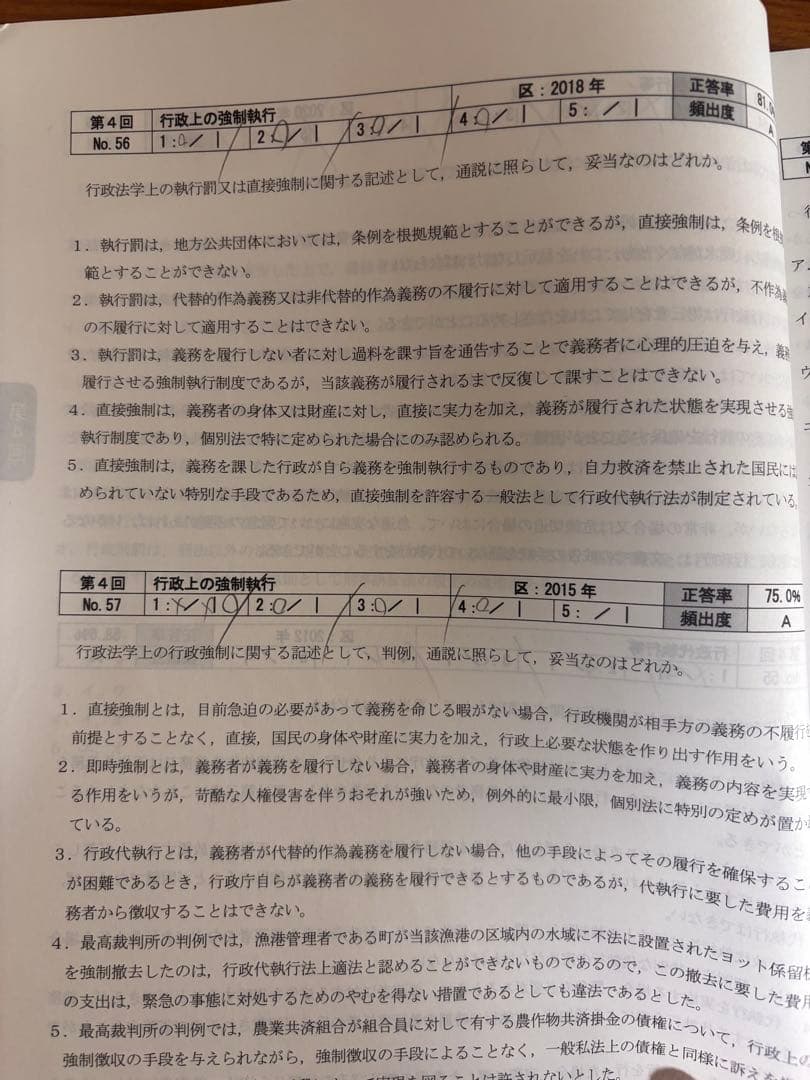 第4回 行政上の強制執行 区：2018年 正答率 81.0
No.56 1: / 2: / 3: / 4: / 5: / 頻出度 A
行政法学上の執行罰又は直接強制に関する記述として，通説に照らして，妥当なのはどれか。
1．執行罰は，地方公共団体においては，条例を根拠規範とすることができるが，直接強制は，条例を根拠
範とすることができない。
2．執行罰は，代替的作為義務又は非代替的作為義務の不履行に対して適用することはできるが，不作為
の不履行に対して適用することはできない。
3．執行罰は，義務を履行しない者に対し過料を課す旨を通告することで義務者に心理的圧迫を与え，義
履行させる強制執行制度であるが，当該義務が履行されるまで反復して課すことはできない。
4．直接強制は，義務者の身体又は財産に対し，直接に実力を加え，義務が履行された状態を実現させる強
執行制度であり，個別法で特に定められた場合にのみ認められる。
5．直接強制は，義務を課した行政が自ら義務を強制執行するものであり，自力救済を禁止された国民には
められていない特別な手段であるため，直接強制を許容する一般法として行政代執行法が制定されている
第4回 行政上の強制執行 区：2015年 正答率 75.0%
No.57 1: / 2: / 3: / 4: / 5: / 頻出度 A
行政法学上の行政強制に関する記述として，判例，通説に照らして，妥当なのはどれか。
1．直接強制とは，目前急迫の必要があって義務を命じる暇がない場合，行政機関が相手方の義務の不履行
前提とすることなく，直接，国民の身体や財産に実力を加え，行政上必要な状態を作り出す作用をいう。
2．即時強制とは，義務者が義務を履行しない場合，義務者の身体や財産に実力を加え，義務の内容を実現
る作用をいうが，苛酷な人権侵害を伴うおそれが強いため，例外的に最小限，個別法に特別の定めが置か
ている。
3．行政代執行とは，義務者が代替的作為義務を履行しない場合，他の手段によってその履行を確保するこ
が困難であるとき，行政庁自らが義務者の義務を履行できるとするものであるが，代執行に要した費用を義
務者から徴収することはできない。
4．最高裁判所の判例では，漁港管理者である町が当該漁港の区域内の水域に不法に設置されたヨット係留
を強制撤去したのは，行政代執行法上適法と認めることができないものであるので，この撤去に要した費用
の支出は，緊急の事態に対処するためのやむを得ない措置であるとしても違法であるとした。
5．最高裁判所の判例では，農業共済組合が組合員に対して有する農作物共済掛金の債権について，行政上の
強制徴収の手段を与えられながら，強制徴収の手段によることなく，一般私法上の債権と同様に訴えを
実現を図ることは許されないとした。